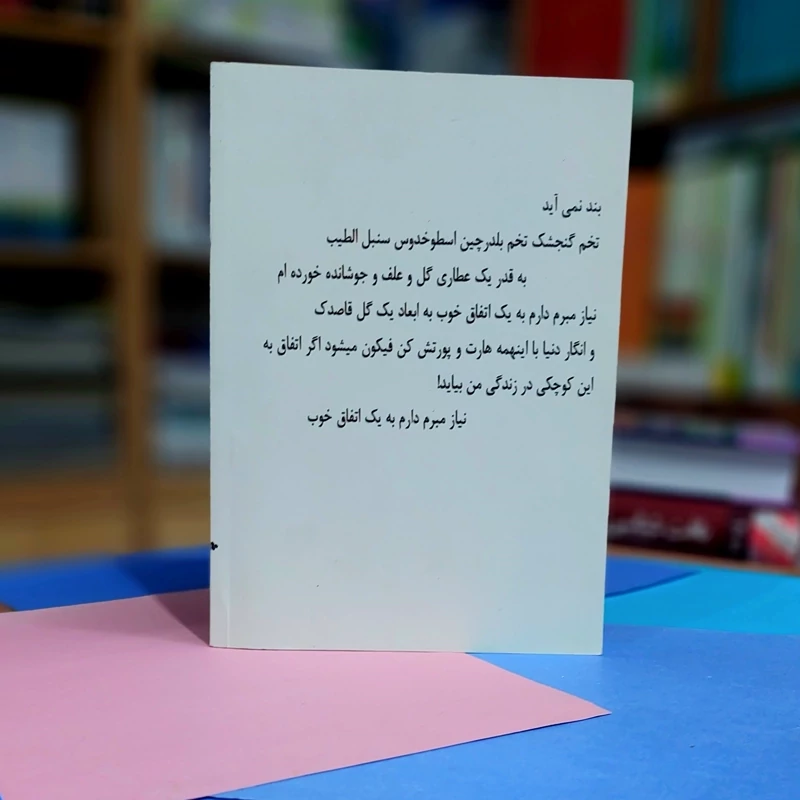 بند نمی آید
تخم گنجشک تخم بلدرچین اسطوخدوس سنبل الطیب
به قدر یک عطاری گل و علف و جوشانده خورده ام
نیاز مبرم دارم به یک اتفاق خوب به ابعاد یک گل قاصدک
و انگار دنیا با اینهمه هارت و پورتش کن فیکون میشود اگر اتفاق به
این کوچکی در زندگی من بیاید!
نیاز مبرم دارم به یک اتفاق خوب